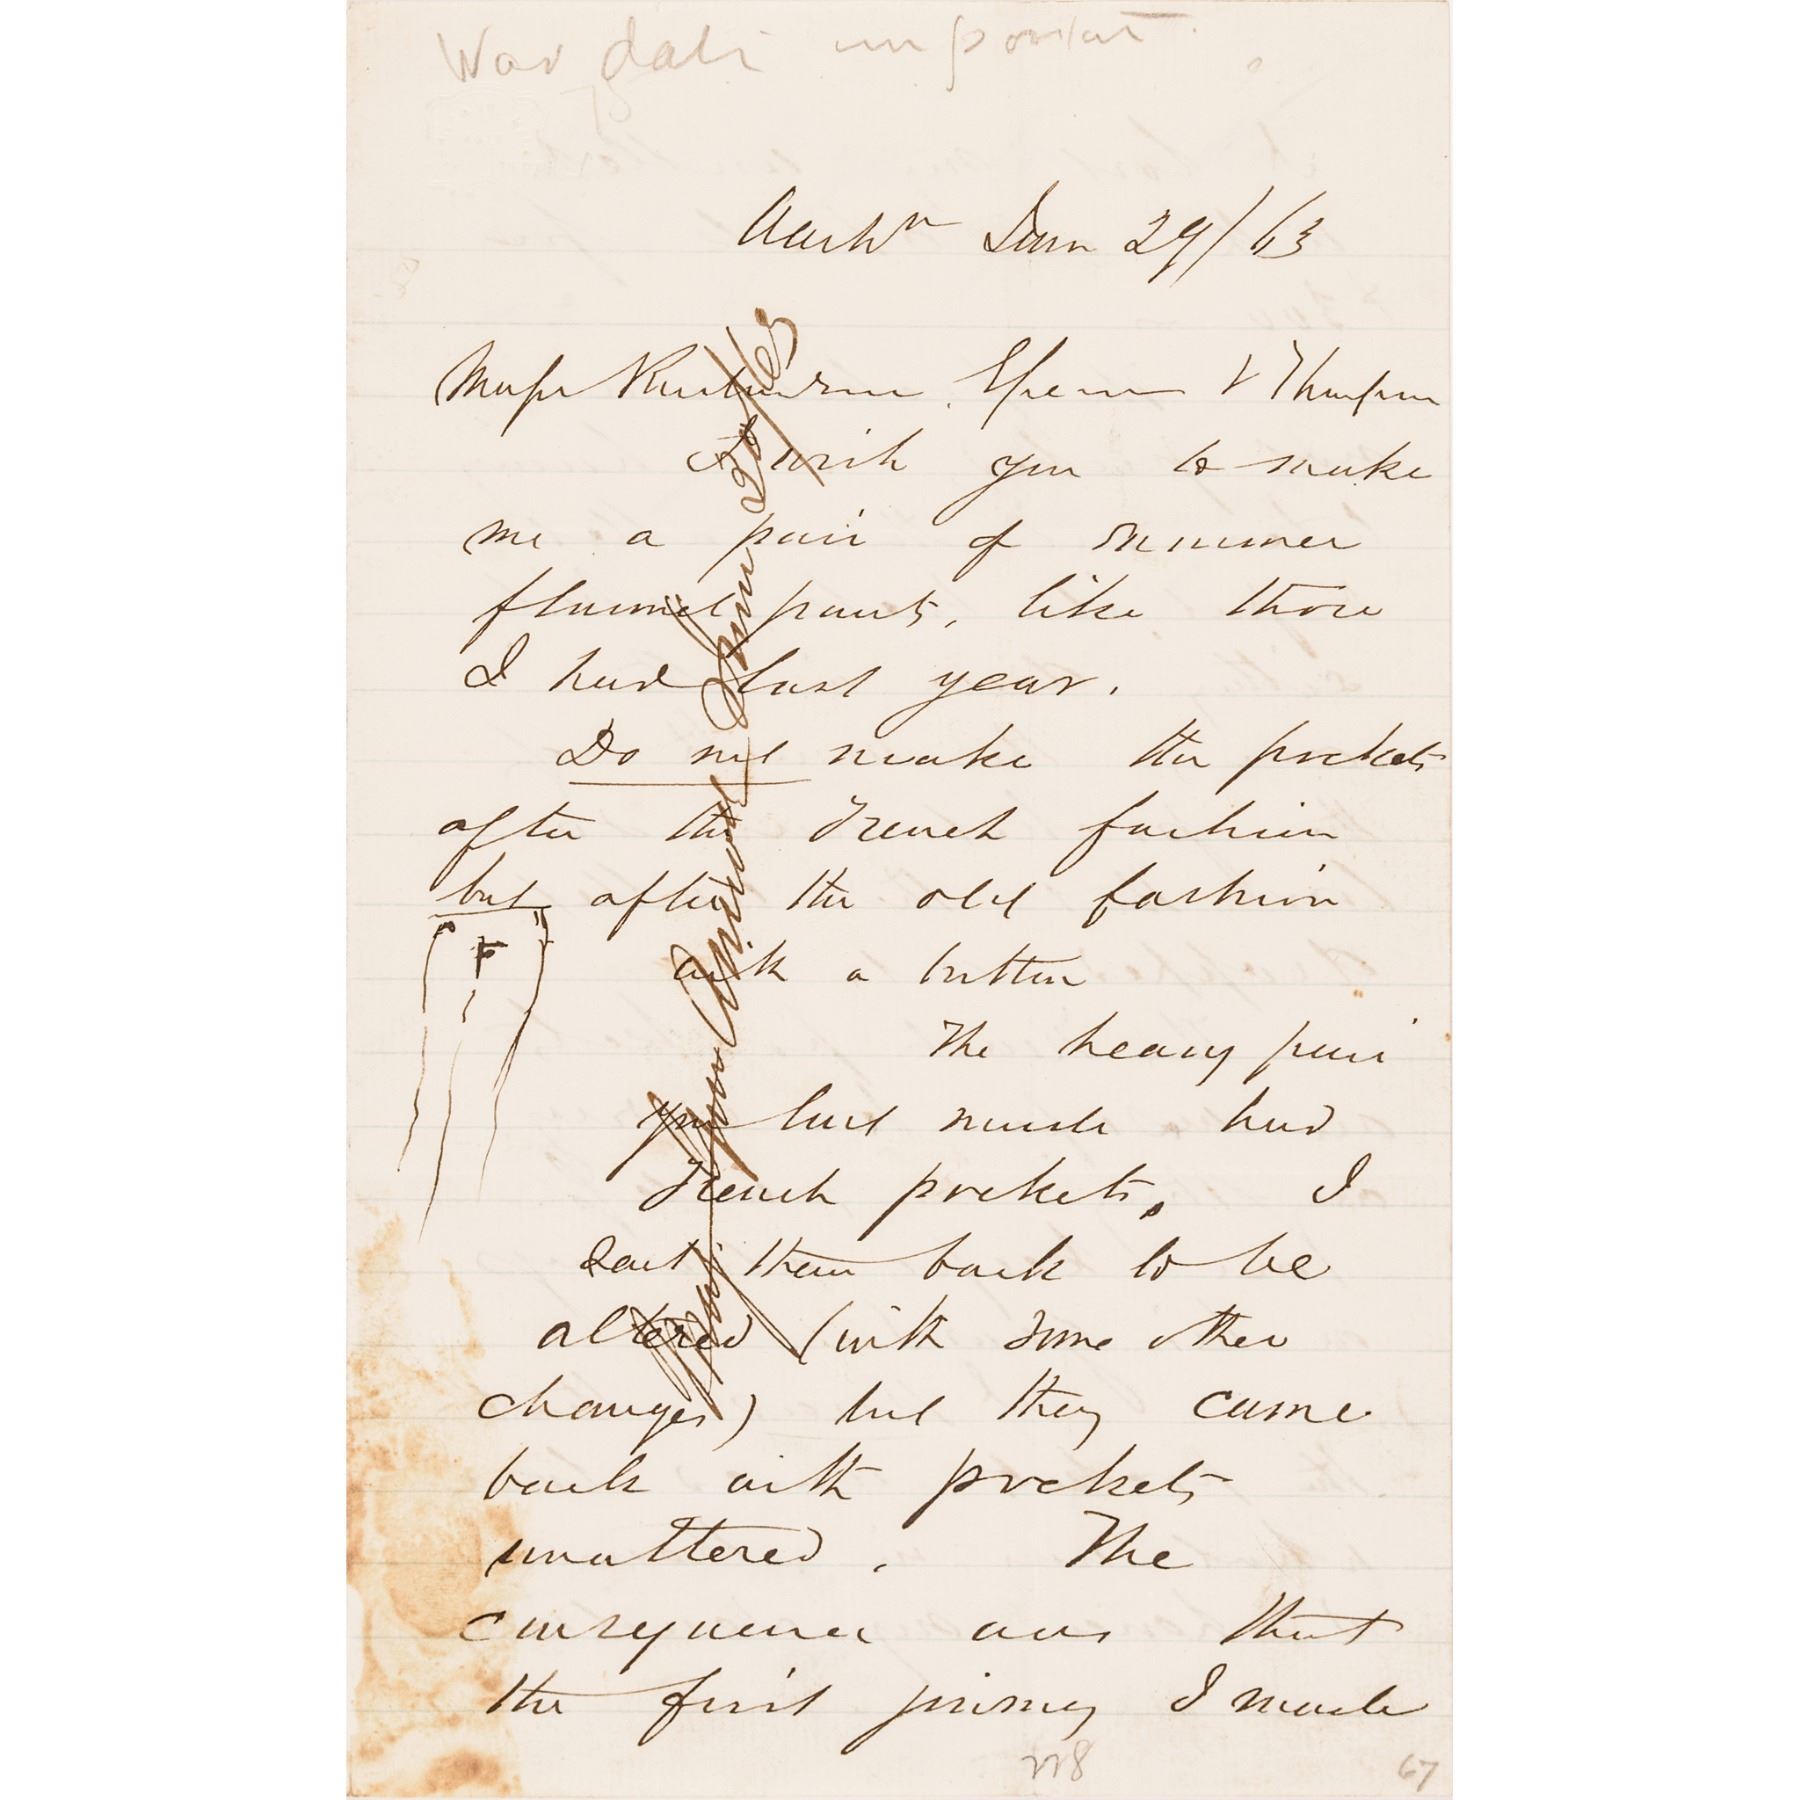 War date important.
Washn Jan 29/63
Messr Richardson Spence & Thompson
I wish you to make
me a pair of summer
flannel pants, like those
I had last year.
Do not make the pockets
after the French fashion
but after the old fashion
with a button
The heavy pair
you last made had
French pockets, I
sent them back to be
altered (with some other
changes) but they came
back with pockets
unaltered. The
consequence was that
the first journey I made
228
67